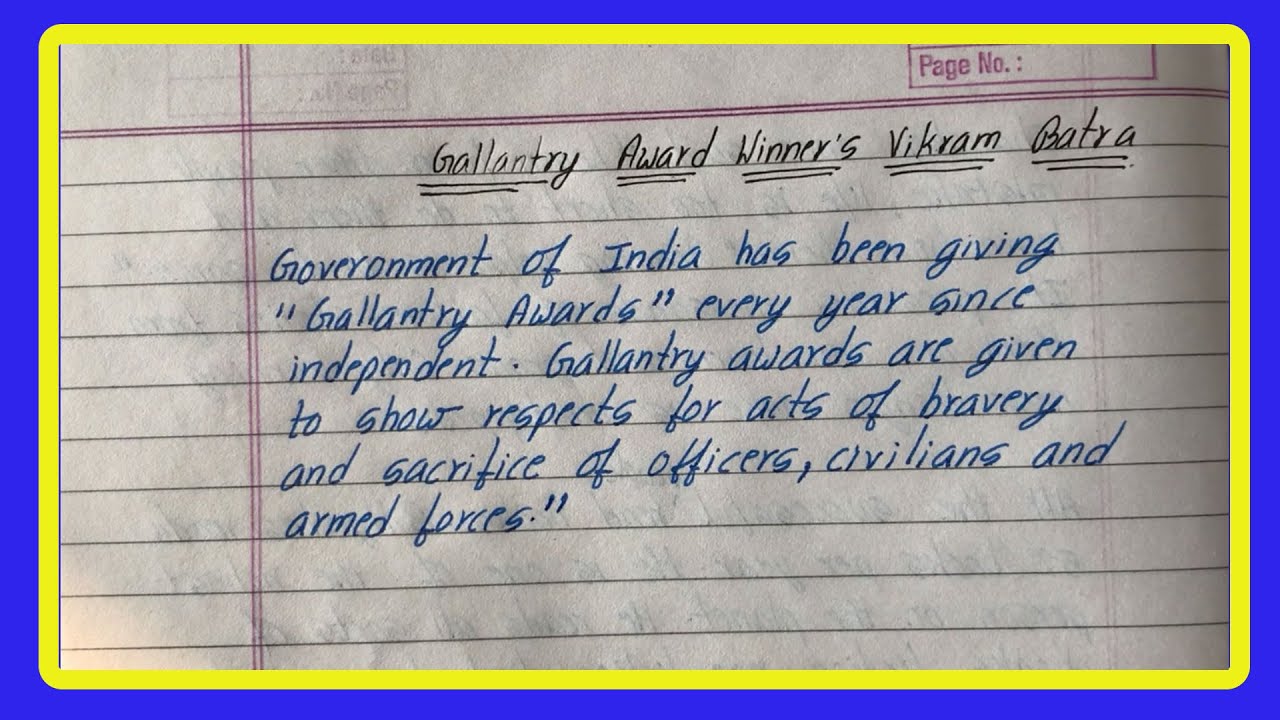 Page No. :
Gallantry Award Winner's Vikram Batra.
Government of India has been giving
"Gallantry Awards" every year since
independent. Gallantry awards are given
to show respects for acts of bravery
and sacrifice of officers, civilians and
armed forces."